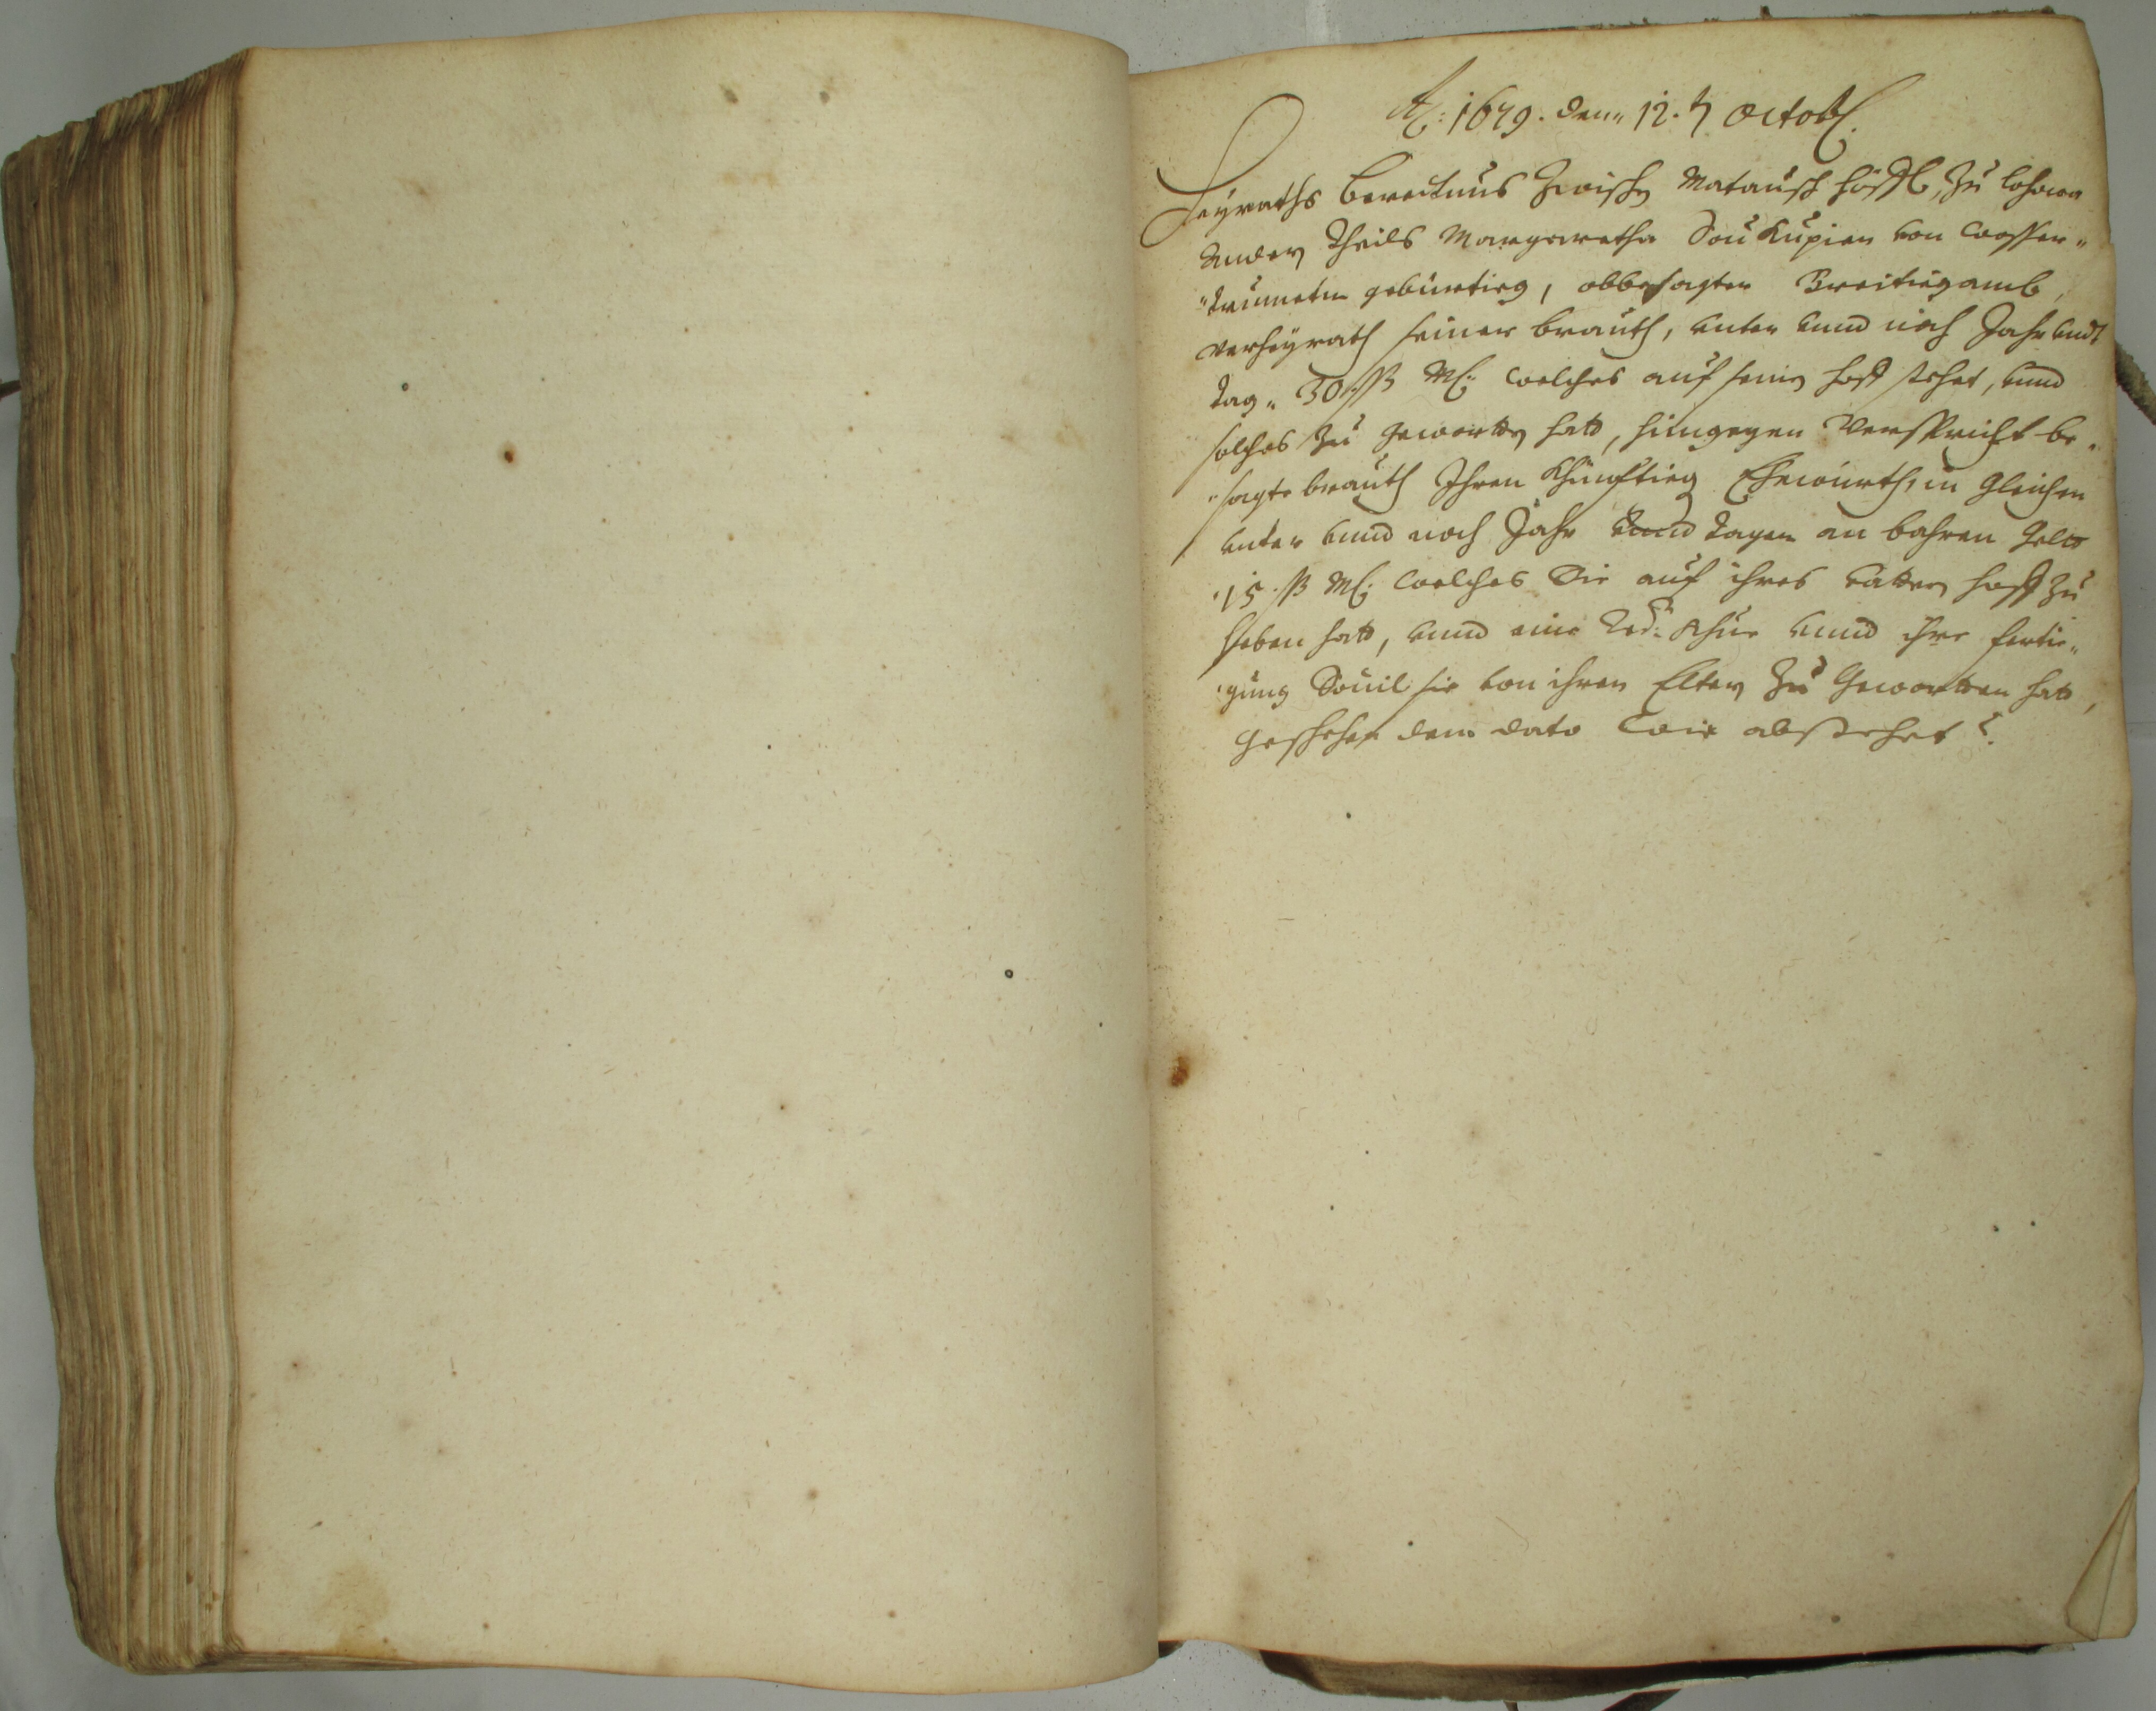 Ao: 1679. den 12. 7 Octob.
Heyraths beredtnus Zwischen Matausch hößl, Zu lohowa
Anders theils Margaretha Soukupien von Wosser„
„ gebürtieg, obbesagter Breitiegamb,
verheyrath seiner brauth, unter unnd noch Jahr und
tag„ 30 ß M: welches auf sein hoff stehet, unnd
solches Zu gewartten hatt, hingegen Verspricht be„
„sagte brauth Ihren Khünftieg Ehewürth, in gleichen
unter unnd noch Jahr unnd tagen an bahren gelt
15. ß M: welches Sie auf ihres vatters hoff zu
heben hatt, unnd eine Khue unnd ihre fertie„
„gung Souil sie von ihren Eltern Zu gewartten hatt,
geschehen dem dato Wie obstehet.